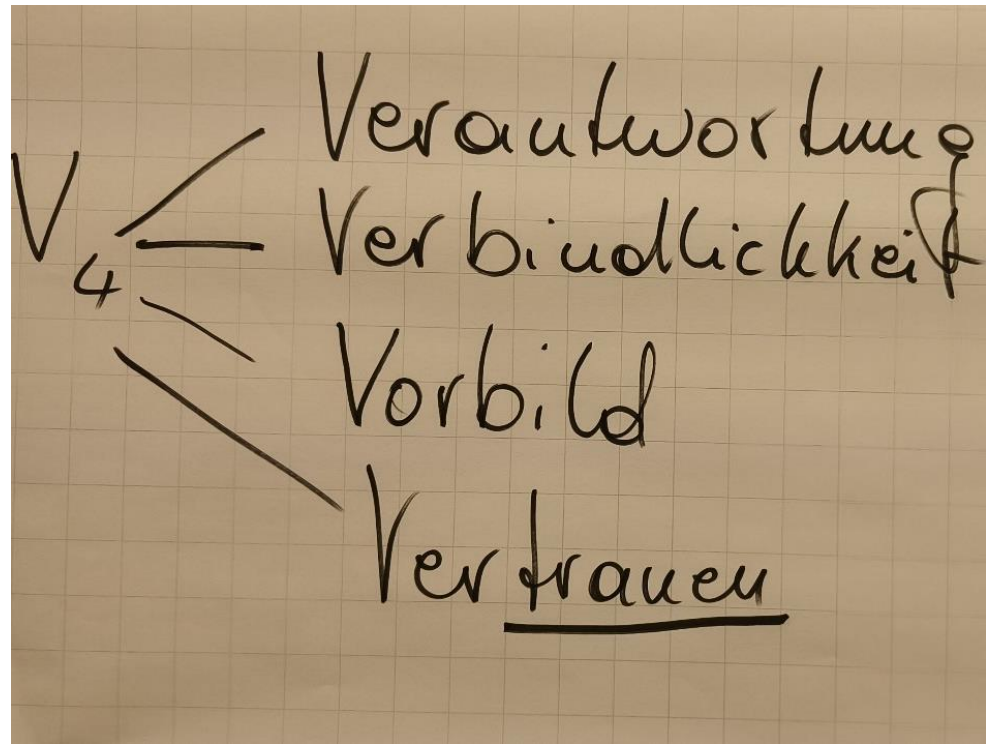 Verantwortung
V4
Verbindlichkeit
Vorbild
Vertrauen